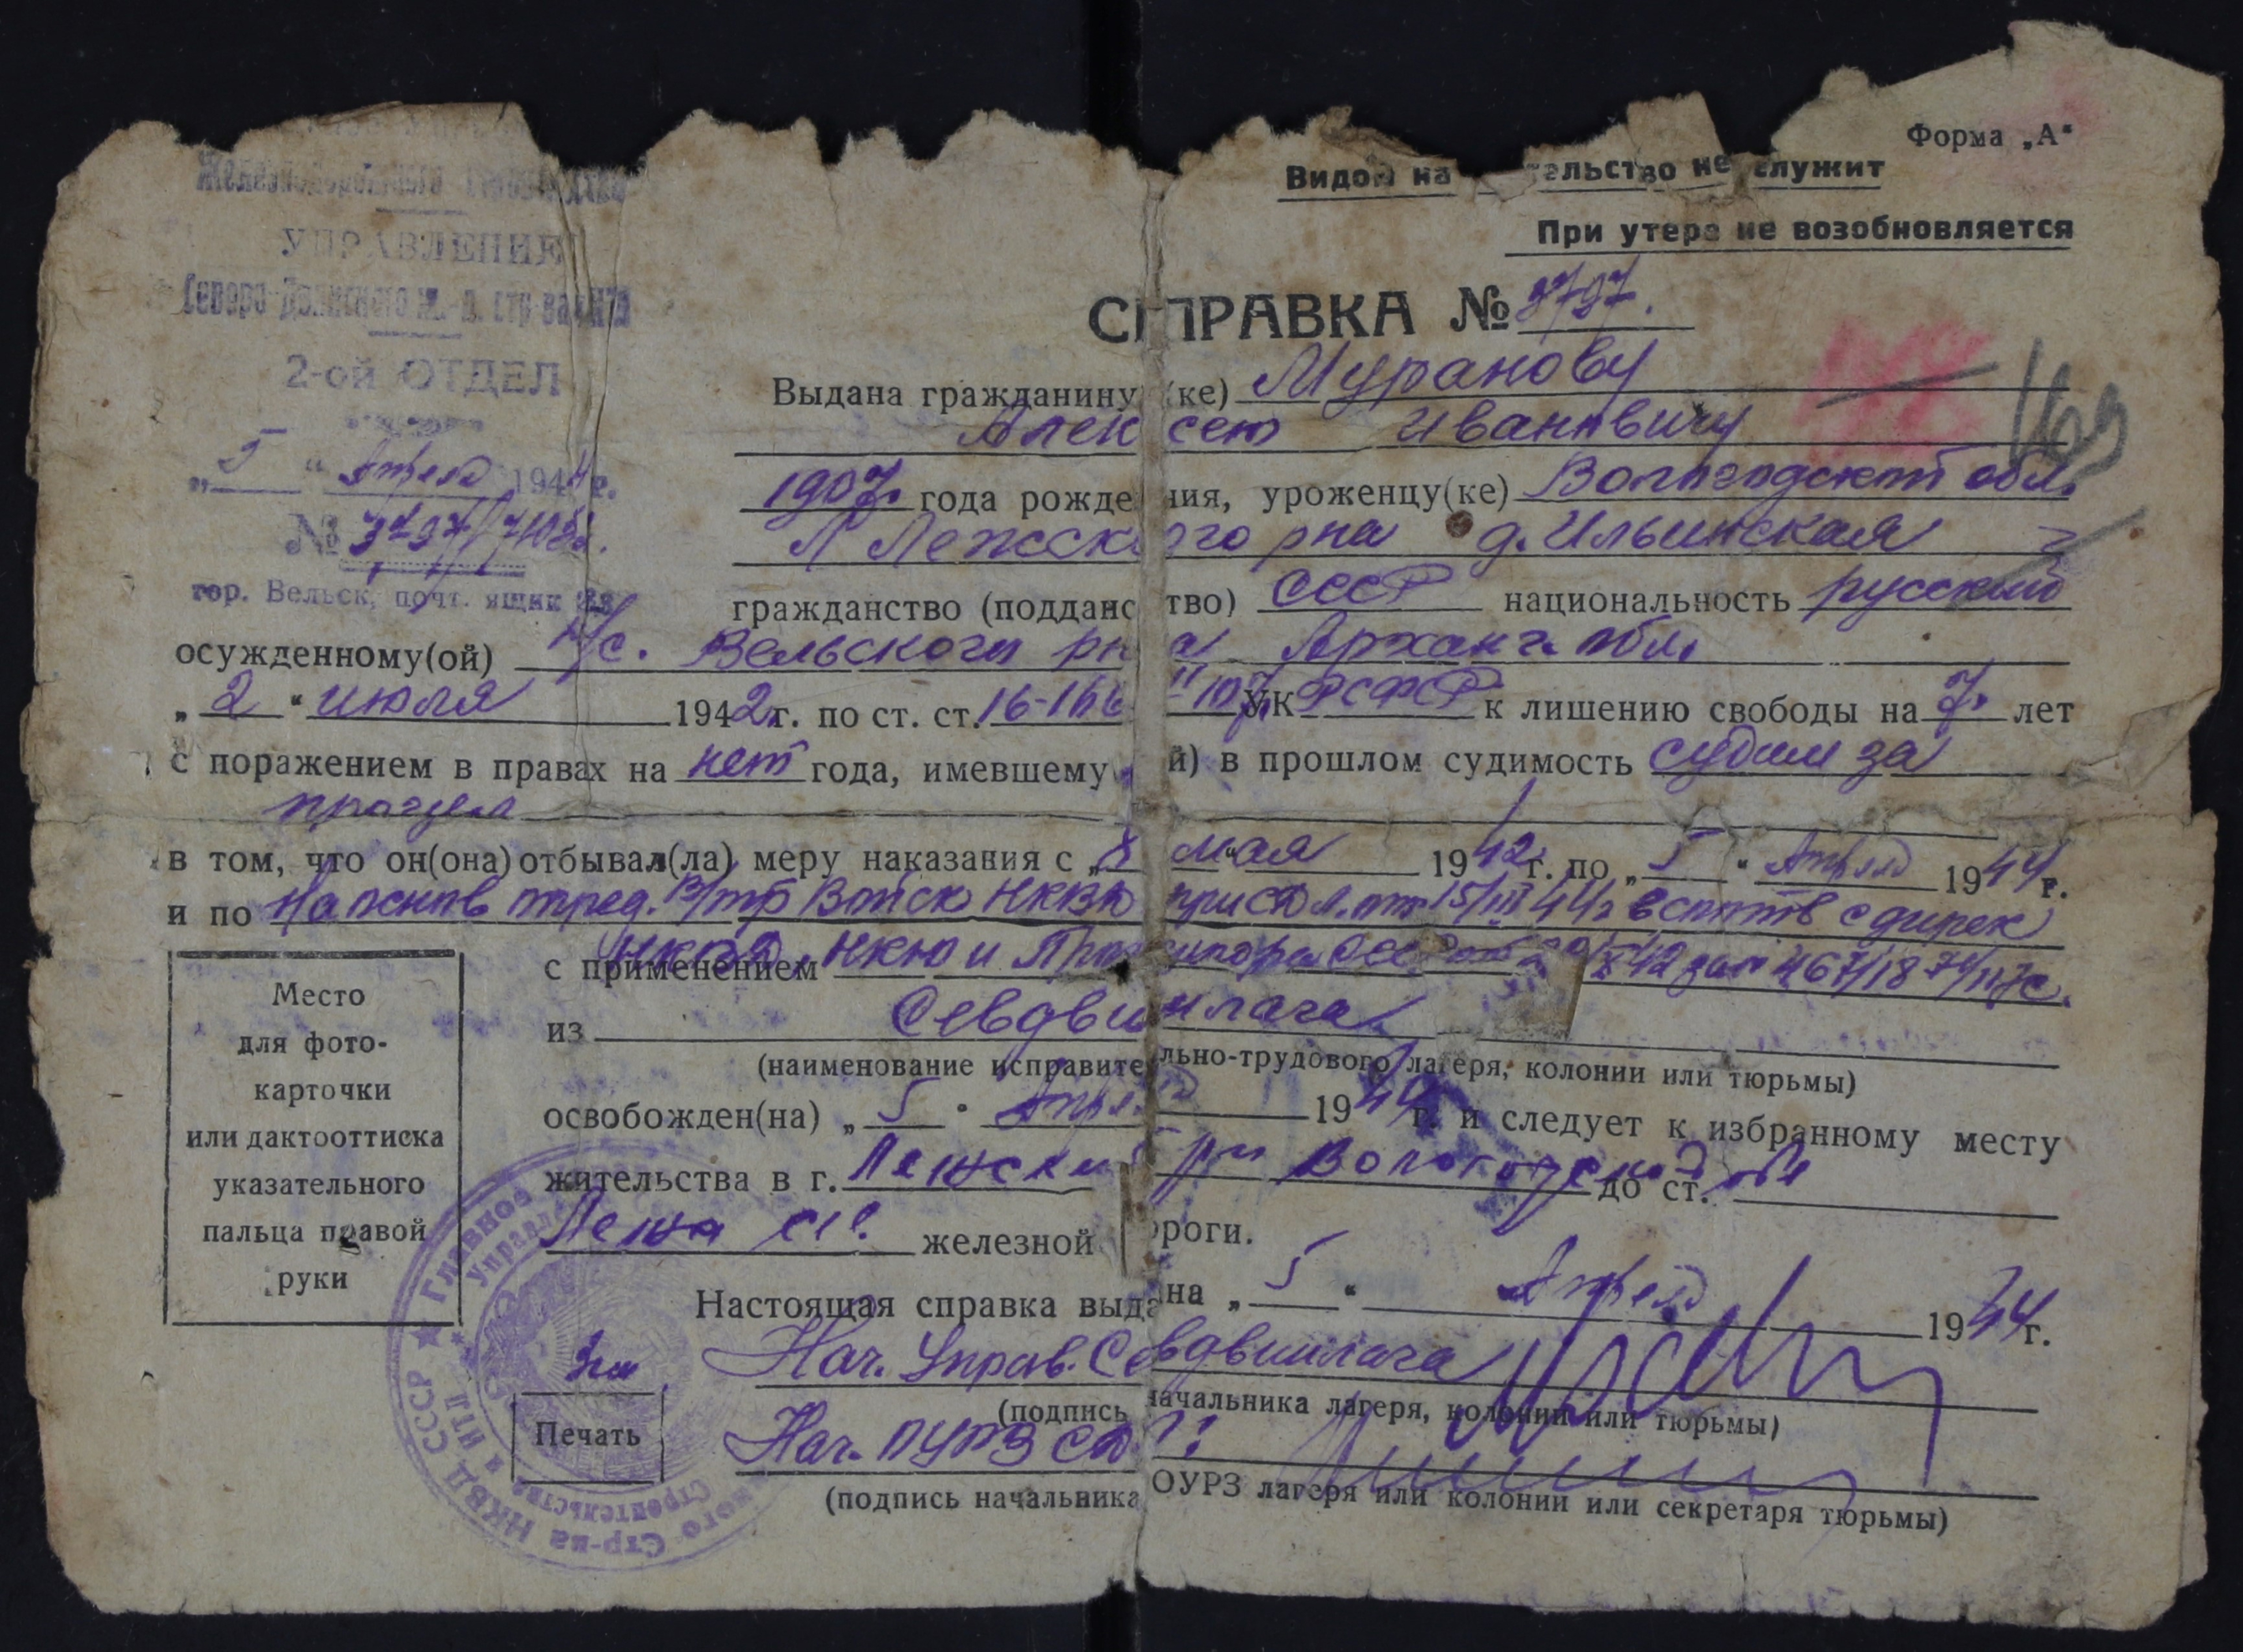 Форма „А“
Видом на ельство не служит
При утере не возобновляется
УПРАВЛЕНИЕ
Северо-Двинского ж.-д. стр-ва
2-ой ОТДЕЛ
„5“ Апреля 1944 г.
№ 3797/
гор. Вельск, почт. ящик
СПРАВКА № 3797.
Выдана гражданину (ке) Муранову
Алексею Ивановичу
1907 года рождения, уроженцу(ке) Вологодской обл.
Лежского рна д. Ильинская
гражданство (подданство) СССР национальность русский
осужденному(ой) н/с. Вельского рна Арханг. обл.
„2“ июля 1942 г. по ст. ст. 16-16 107 УК РСФСР к лишению свободы на 7 лет
с поражением в правах на нет года, имевшему й) в прошлом судимость судим за
прогул
в том, что он(она) отбывал(ла) меру наказания с „ мая 1942 г. по „5“ Апреля 1944 г.
и по На основ опред. В/тр Войск НКВД при СДЛ от 15/III 44 г в соотв с дирек
с применением НКВД, НКЮ и Прокурора СССР 42 за № 467/18-71/117с.
из Севдвинлага
(наименование исправительно-трудового лагеря, колонии или тюрьмы)
освобожден(на) „5“ Апреля 1944 г. и следует к избранному месту
жительства в г. Лежский рн Вологодской обл до ст.
Лежа Сев. железной ороги.
Настоящая справка выдана „5“ Апреля 1944 г.
Нач. Управ. Севдвинлага
(подпись начальника лагеря, колонии или тюрьмы)
Нач. ОУРЗ СД
(подпись начальника ОУРЗ лагеря или колонии или секретаря тюрьмы)
Место
для фото-
карточки
или дактооттиска
указательного
пальца правой
руки
Печать
Главное Управле
НКВД СССР
ного Стр-ва
строительства
и ИТЛ
163